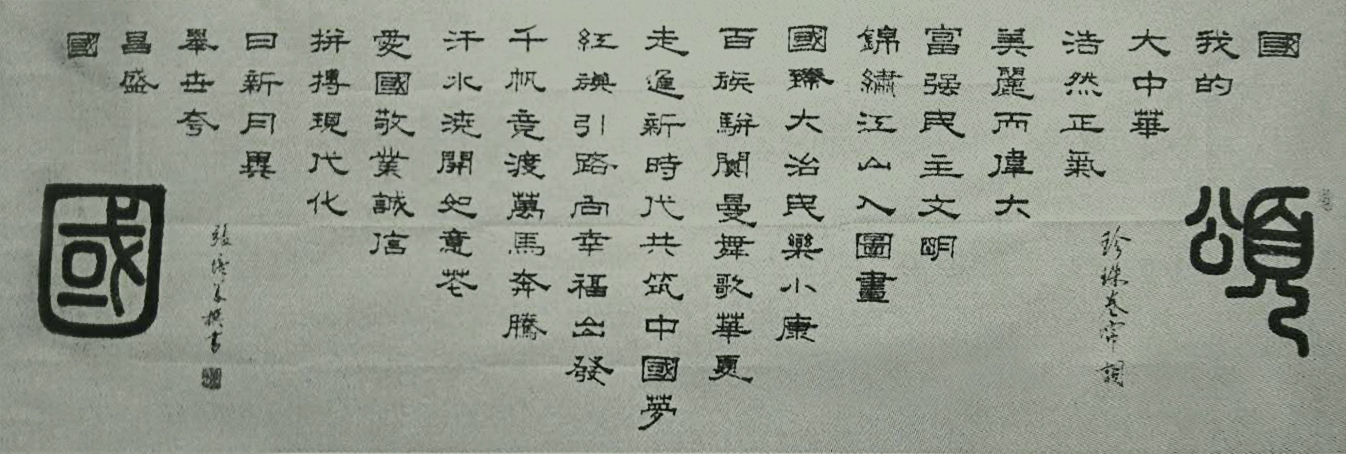 頌
國
我的
大中華
浩然正氣
美麗而偉大
富强民主文明
錦繡江山入圖畫
國臻大治民樂小康
百族駢闐曼舞歌華夏
走進新時代共筑中國夢
紅旗引路向幸福出發
千帆竞渡萬馬奔騰
汗水澆開如意花
愛國敬業誠信
拼搏現代化
日新月異
舉世夸
昌盛
國
珍珠卷帘詞
國
張撰書